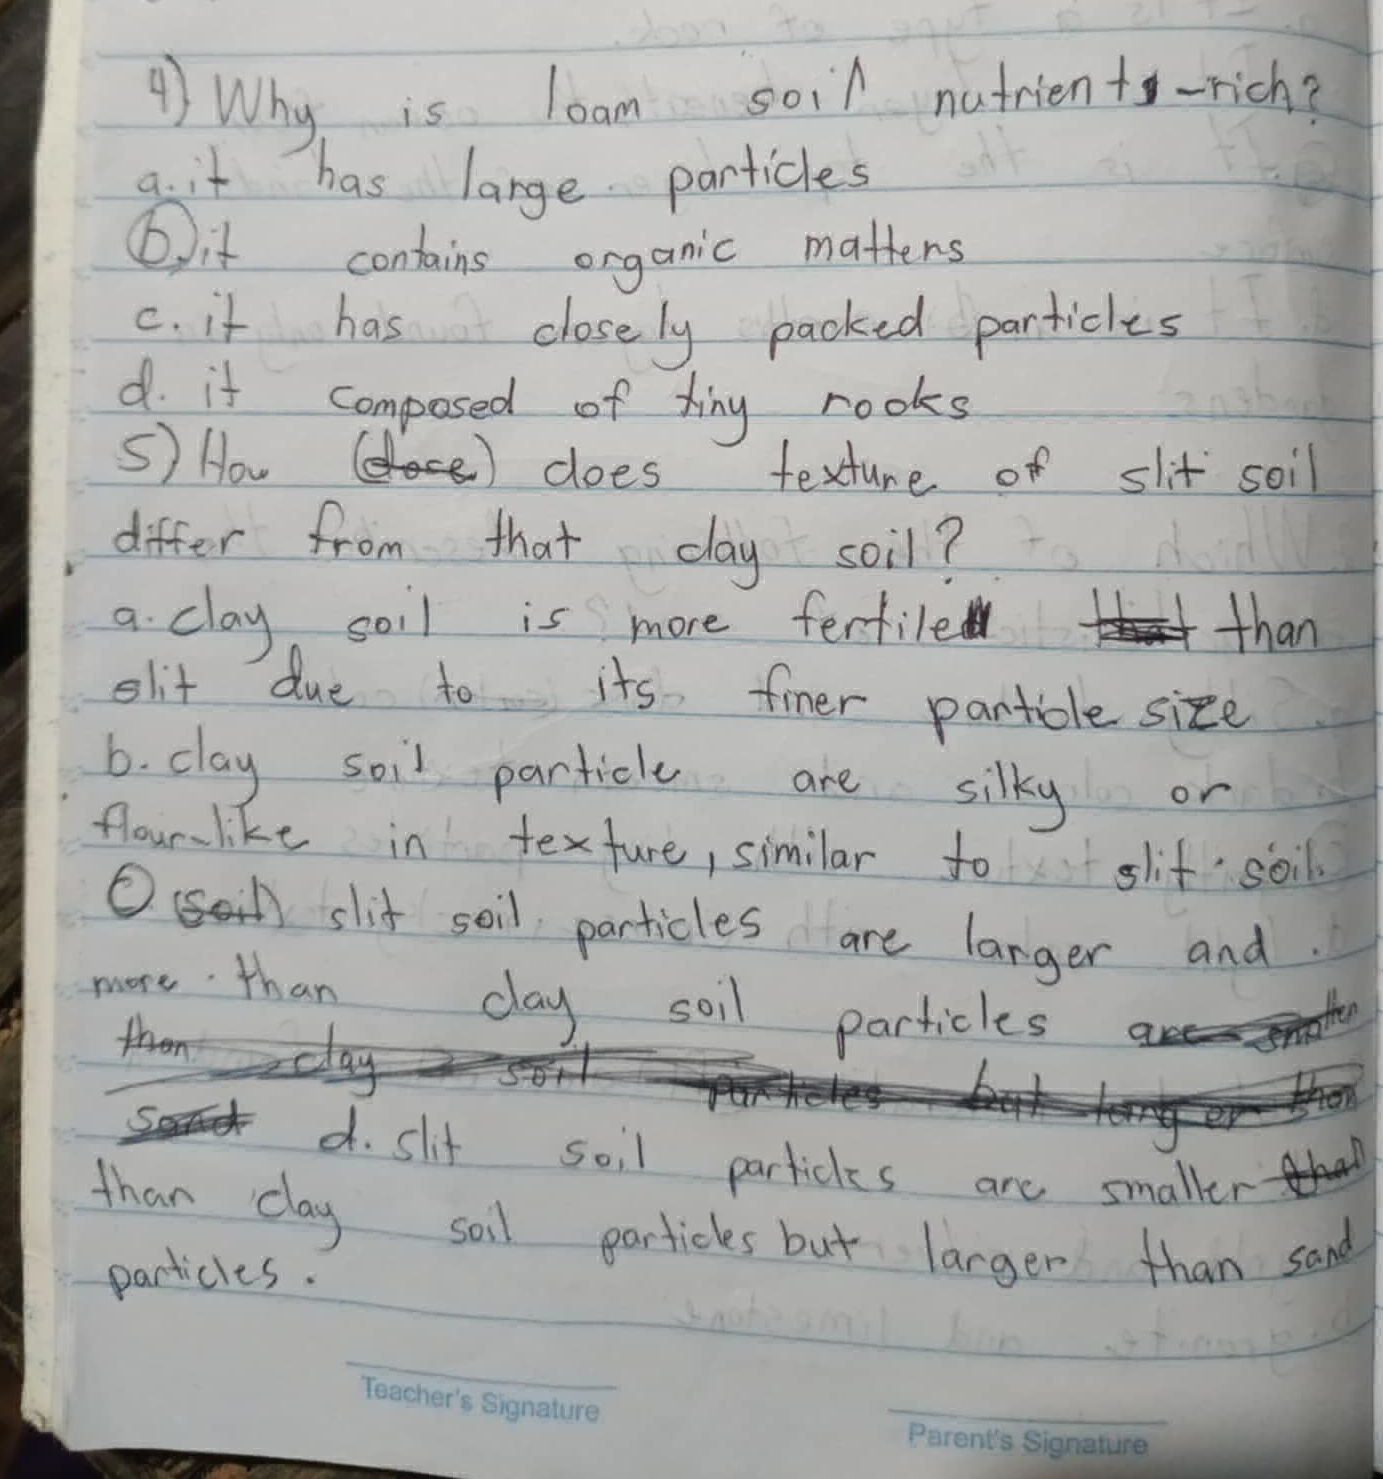 4) Why is loam soil nutrients-rich?
a. it has large particles
b. it contains organic matters
c. it has closely packed particles
d. it composed of tiny rooks
5) How (doce) does texture of slit soil
differ from that clay soil?
a. clay soil is more fertile that than
slit due to its finer particle size
b. clay soil particle are silky or
flour-like in texture, similar to slit soil.
C (soil) slit soil particles are larger and
more than clay soil particles are smaller
than clay soil particles but larger than
sand d. slit soil particles are smaller than
than clay soil particles but larger than sand
particles.
Teacher's Signature
Parent's Signature